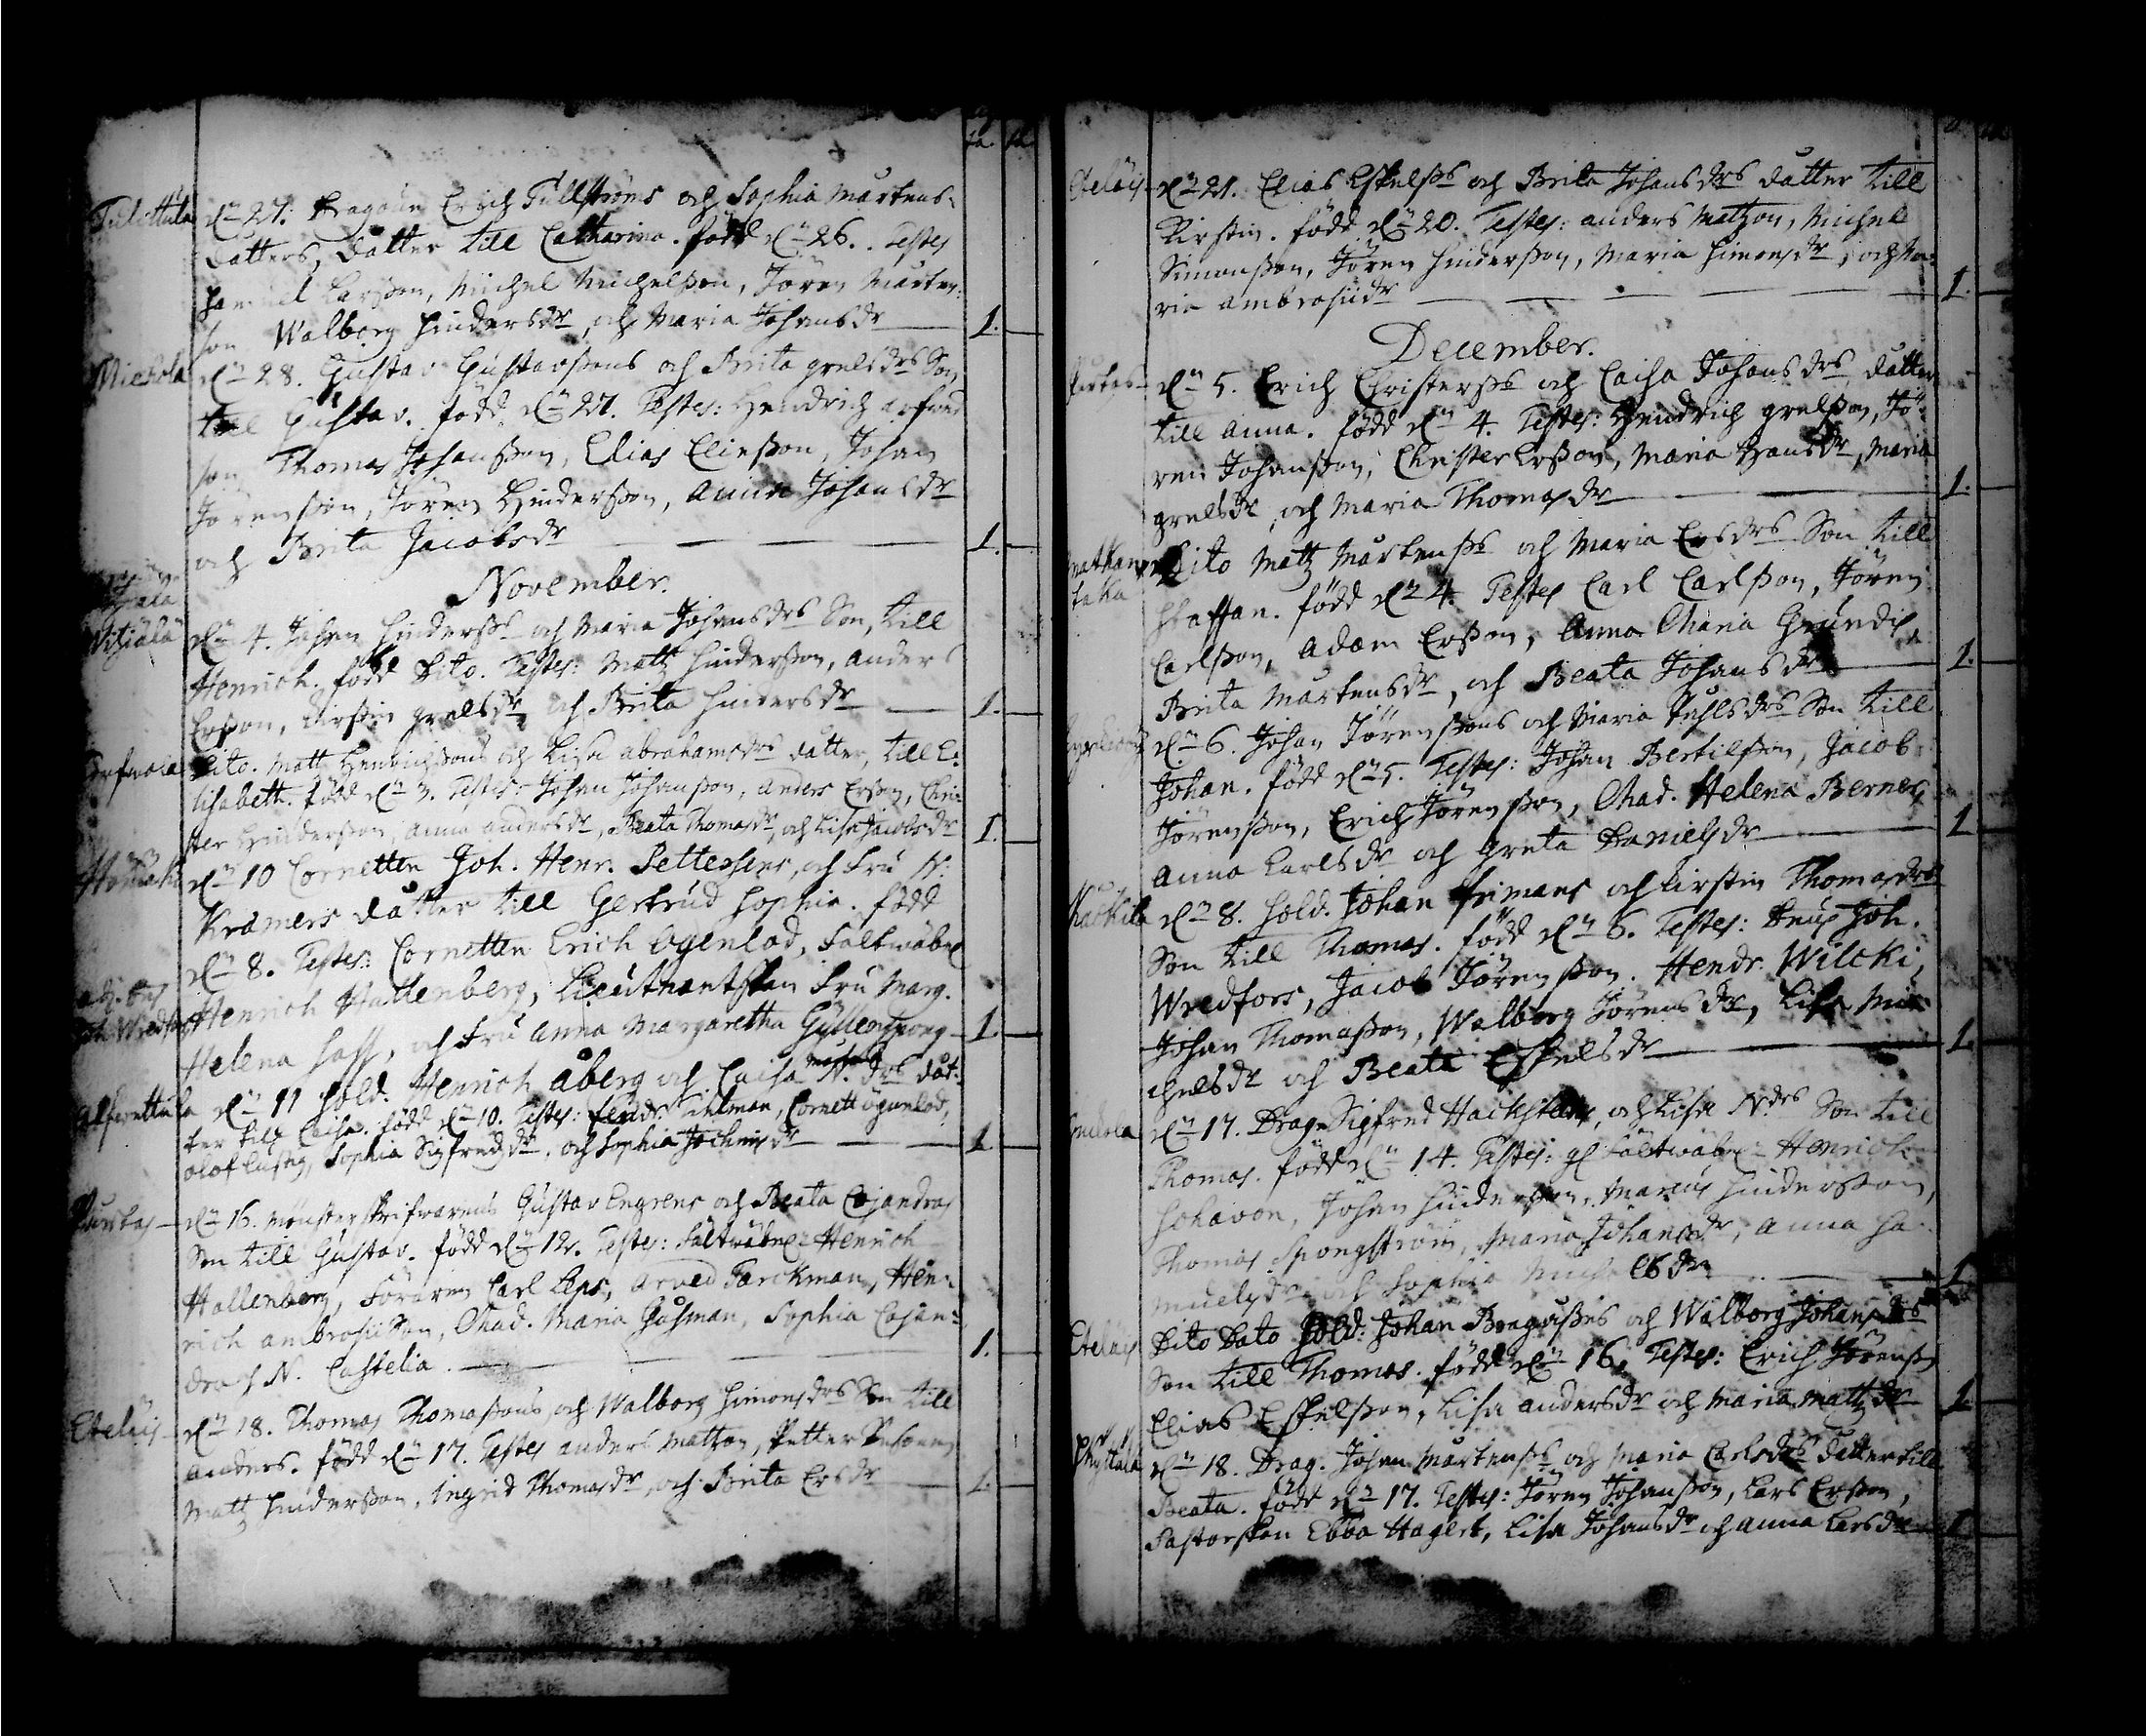 dn 27. Dragoun Erich Tullströms och Sophia Mårtens-
Tulettula
datters, datter till Catharina. född dn 26. Testes
Larsson, Michel Michelsson, Jören Mårten-
son Walborg Hindersdr, och Maria Johansdr 1.
dn 28. Gustav Gustavssons och Brita grelsdrs Son
till Gustav. född dn 27. Testes: Hendrich
son Thomas Johansson, Elias Eliesson, Johan
Jörensson, Jören Hindersson, Anna Johansdr
och Brita Jacobsdr 1.
November.
dn 4. Johan Hinderss och Maria Johansdrs Son, till
Henrich. född Dito. Testes: Matz Hindersson, Anders
Ersson, Kirstin grelsdr och Brita Hindersdr 1.
Dito. Matz Henrichssons och Lisa abrahamsdrs datter, till E-
lisabeth. född dn 3. Testes: Johan Johansson, Anders Ersson, Chri-
ster Hindersson, Anna Andersdr, Beata Thomasdr, och Lisa Jacobsdr 1.
dn 10 Cornetten Joh. Henr. Pettersens, och Fru N.
Kramers datter till Gertrud Sophia. född
dn 8. Testes: Cornetten Erich Ogenlod, Faltwäbel
Henrich Hallenberg, Lieutnantskan Fru Marg.
Joh. Wredfors
Helena Hass, och Fru Anna Margaretha Gyllenspong 1.
dn 11 Sold. Henrich Åberg och Caisa N. drs dat-
ter till Caisa. född dn 10. Testes: Cornett Ogenlod,
olof Lustig, Sophia Sigfredsdr, och Sophia Jochimsdr 1.
dn 16. Mönsterskrifwarens Gustav Engrens och Beata Cajandras
Son till Gustav. född dn 12. Testes: Fältwäbel Henrich
Hallenberg, Föraren Carl Leps, Arved Tarckman, Hen-
rich ambrosiisson, Mad. Maria Gåsman, Sophia Cajan-
dra N. Castelia. 1.
Eteläis
dn 18. Thomas Thomassons och Walborg Simonsdrs Son till
Anders. född dn 17. Testes anders Matzon, Petter
Matz Hindersson, Ingrid Thomasdr, och Brita Ersdr 1.
Eteläis
dn 21. Elias Eskelss och Brita Johansdrs datter till
Kirstin. född dn 20. Testes: anders Matzon, Michel
Simonsson, Jören Hindersson, Maria Simonsdr, och Ma-
ria ambrosiidr 1.
December.
dn 5. Erich Christerss och Caisa Johansdrs datter
till Anna. född dn 4. Testes: Hendrich grelsson, Jö-
ren Johansson, Christer Ersson, Maria Hansdr, Maria
grelsdr, och Maria Thomasdr 1.
Dito Matz Mårtenss och Maria Ersdrs Son till
Staffan. född dn 4. Testes Carl Carlsson, Jören
Carlsson, Adam Ersson, Anna Maria
Brita Mårtensdr, och Beata Johansdr 1.
dn 6. Johan Jörenssons och Maria Påhlsdrs Son till
Johan. född dn 5. Testes: Johan Bertilsson, Jacob
Jörensson, Erich Jörensson, Mad. Helena Berner,
Anna Carlsdr och Greta Danielsdr 1
dn 8. Sold. Johan Frimans och Kirstin Thomasdrs
Son till Thomas. född dn 6. Testes: Joh.
Wredfors, Jacob Jörensson, Hendr. Wilcki,
Johan Thomasson, Walborg Jörensdr, Lisa Mi-
chelsdr och Beata Eskelsdr 1.
dn 17. Drag. Sigfred Hackstens, och Lisa Ndrs Son till
Thomas. född dn 14. Testes: Fältwäbel Henrich
Johan Hindersson, Marcus Hindersson,
Thomas Spongström, Maria Johansdr, Anna Sa-
muelsdr och Sophia 1
Eteläis
Dito Dato Sold: Johan och Walborg Johansdrs
Son till Thomas. född dn 16. Testes: Erich Jörenss
Elias Eskelsson, Lisa andersdr och Maria Matzdr 1.
dn 18. Drag. Johan Mårtenss och Maria Carlsdrs datter till
Beata. född dn 17. Testes: Jören Johansson, Lars Ersson,
Pastorskan Ebba Hagert, Lisa Johansdr och Anna Larsdr 1